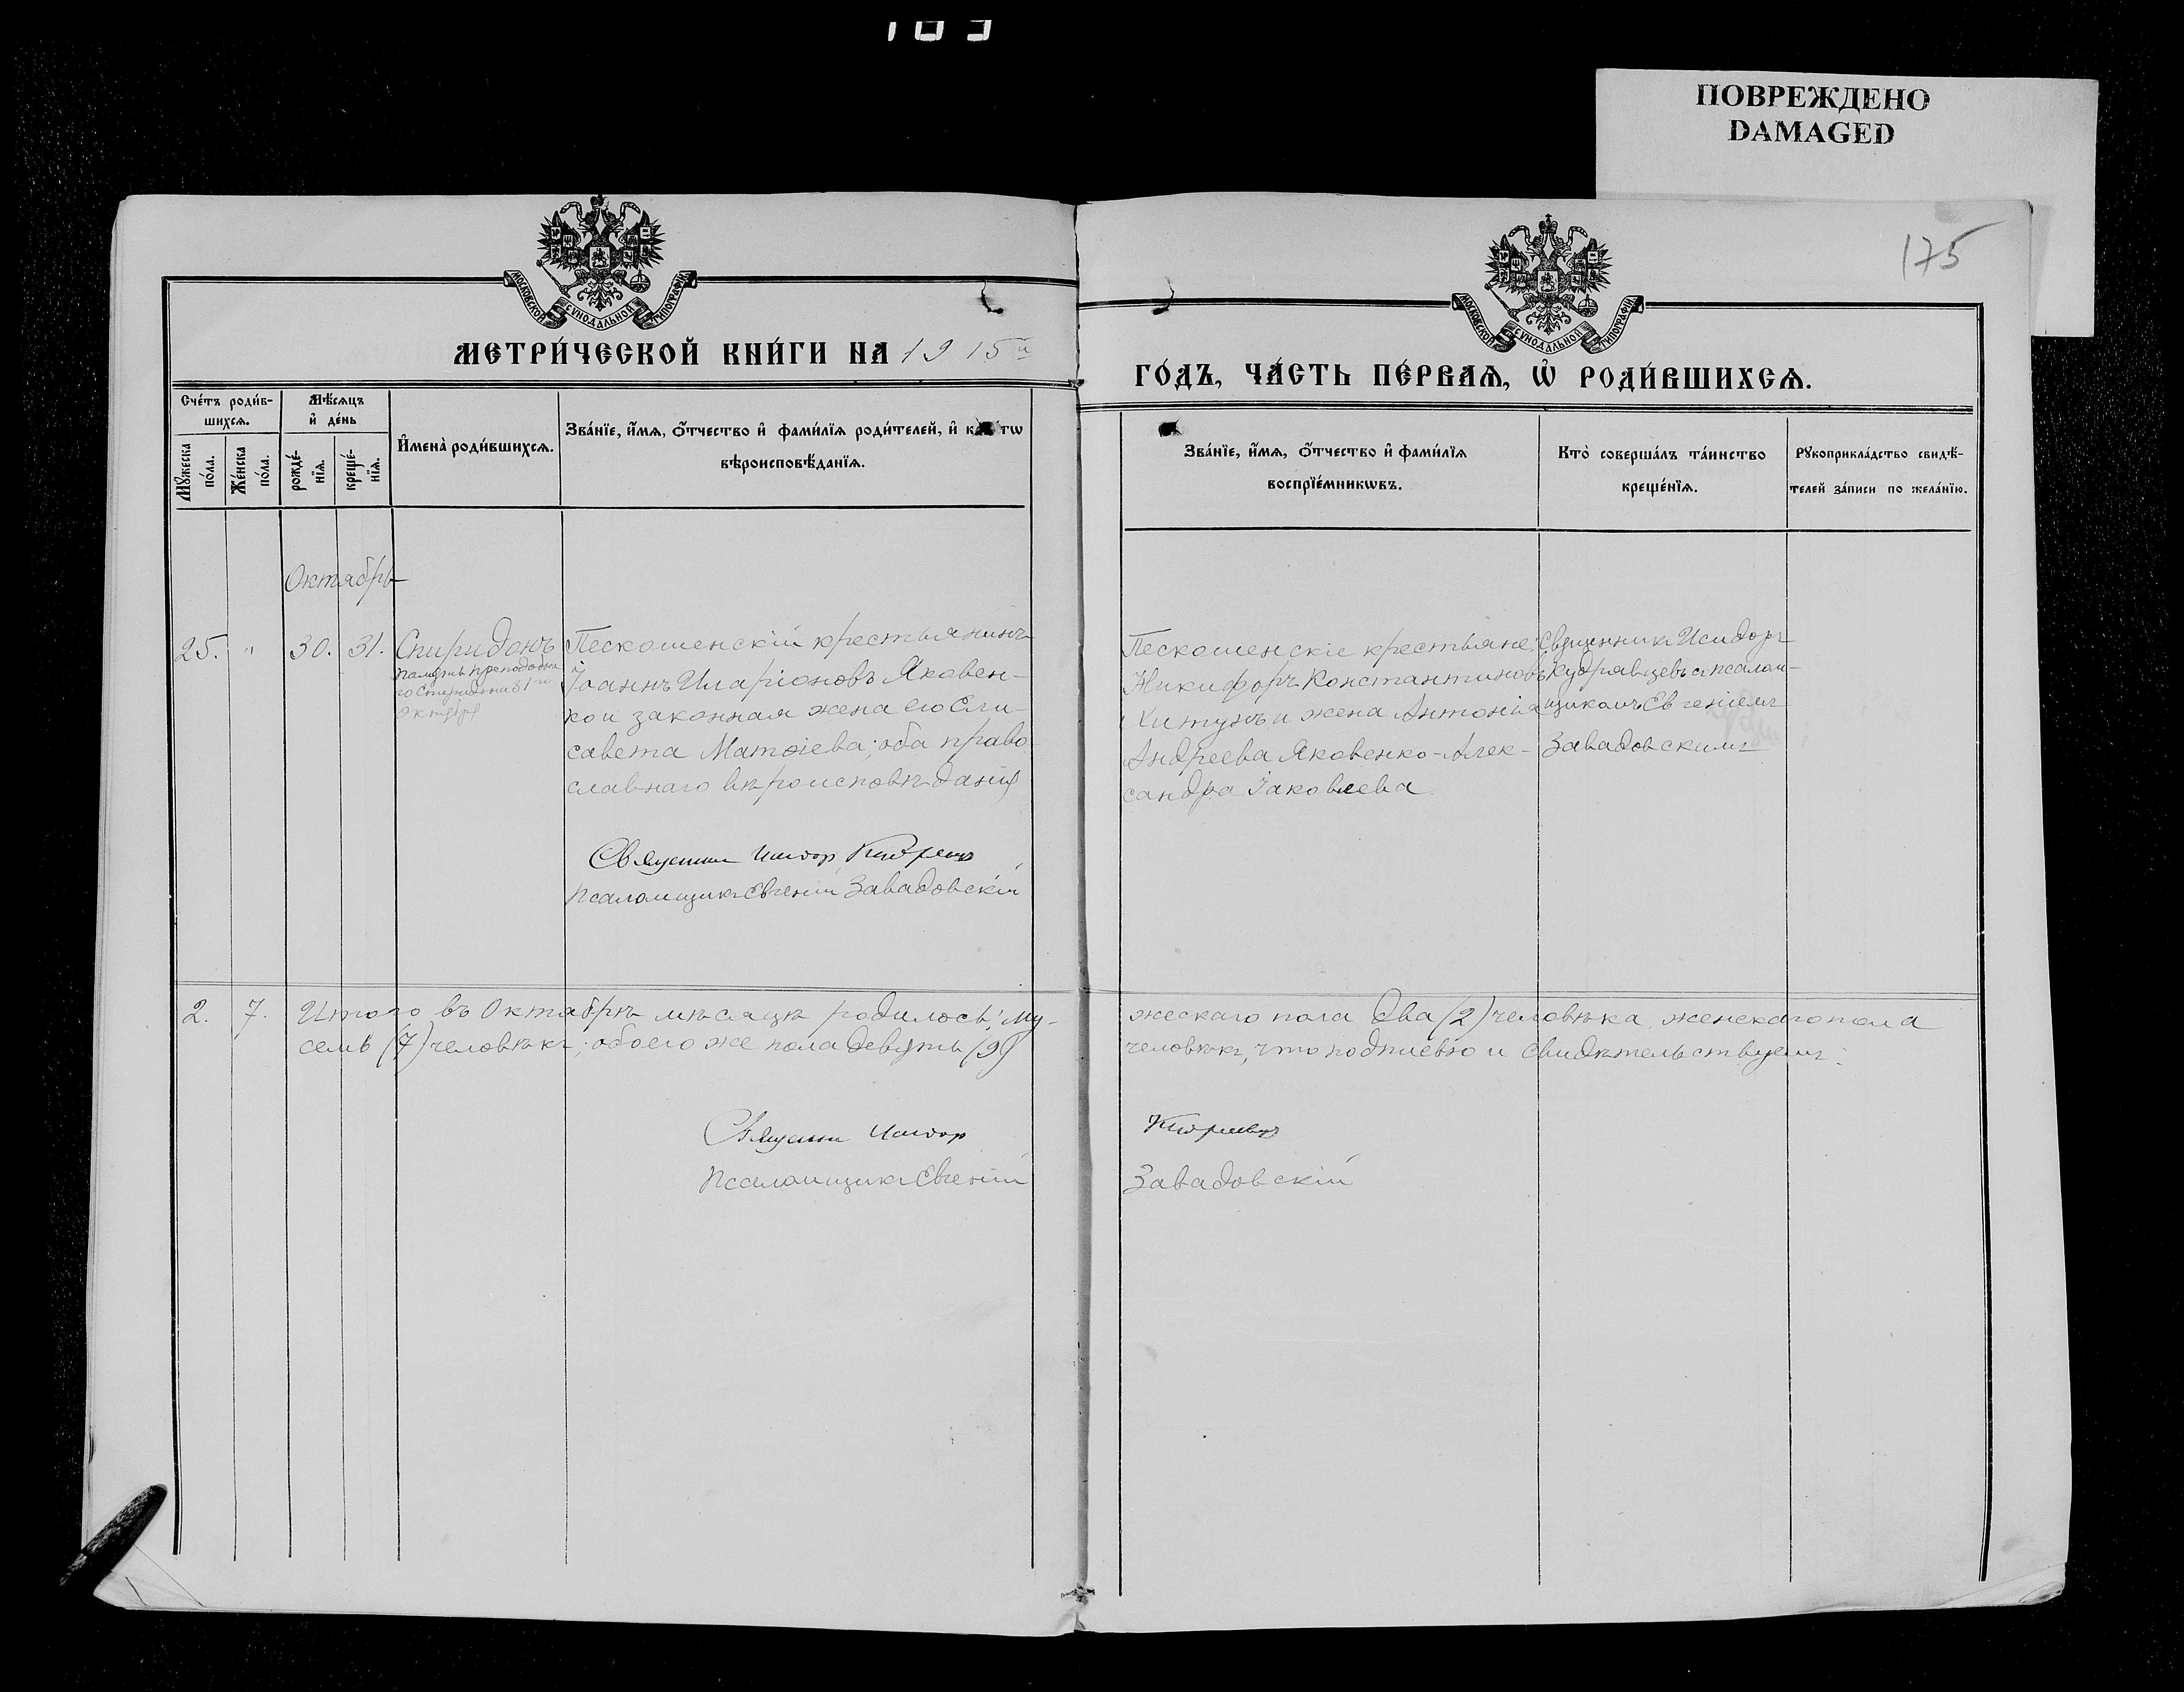 ПОВРЕЖДЕНО
DAMAGED
175
МОСКОВСКОЙ СѴНОДАЛЬНОЙ ТИПОГРАФІИ
МОСКОВСКОЙ СѴНОДАЛЬНОЙ ТИПОГРАФІИ
МЕТРИ́ЧЕСКОЙ КНИ́ГИ НА 1915й
ГО́ДЪ, ЧА́СТЬ ПЕ́РВАѦ, Ѡ҆ РОДИ́ВШИХСѦ.
Сче́тъ роди́в-
шихсѧ.
Мꙋ́жеска
по́ла.
Же́нска
по́ла.
Мѣ́сѧцъ
и҆ де́нь
рожде́-
нїѧ.
креще́-
нїѧ.
И҆мена̀ роди́вшихсѧ.
Зва́нїе, и҆́мѧ, ѻ҆́тчество и҆ фами́лїѧ роди́телей, и҆
вѣроисповѣ́данїѧ.
Зва́нїе, и҆́мѧ, ѻ҆́тчество и҆ фами́лїѧ
воспрїе́мникѡвъ.
Кто̀ соверша́лъ та́инство
креще́нїѧ.
Рꙋкоприкла́дство свидѣ́-
телей за́писи по жела́нїю.
Октябрь
25. " 30. 31.
Спиридонъ
память преподобна
го Спиридона 31го
октября
Пескошенскій крестьянинъ
Іоаннъ Иларіоновъ Яковен-
ко и законная жена его Ели-
савета Матѳіева; оба право
славнаго вѣроисповѣданія
Священникъ Исидоръ Кудрявцевъ
Псаломщикъ Евгеній Завадовскій
Пескошенскіе крестьяне:
Никифоръ Константиновъ
Хитунъ и жена Антонія
Андреева Яковенко-Алек-
сандра Іаковлева
Священникъ Исидоръ
Кудрявцевъ съ псалом-
щикомъ Евгеніемъ
Завадовскимъ
2. 7. Итого въ Октябрѣ мѣсяцѣ родилось: му-
жескаго пола два (2) человѣка, женскаго пола
семь (7) человѣкъ; обоего же пола девять (9)
человѣкъ, что подписью и свидѣтельствуемъ:
Священникъ Исидоръ Кудрявцевъ
Псаломщикъ Евгеній Завадовскій